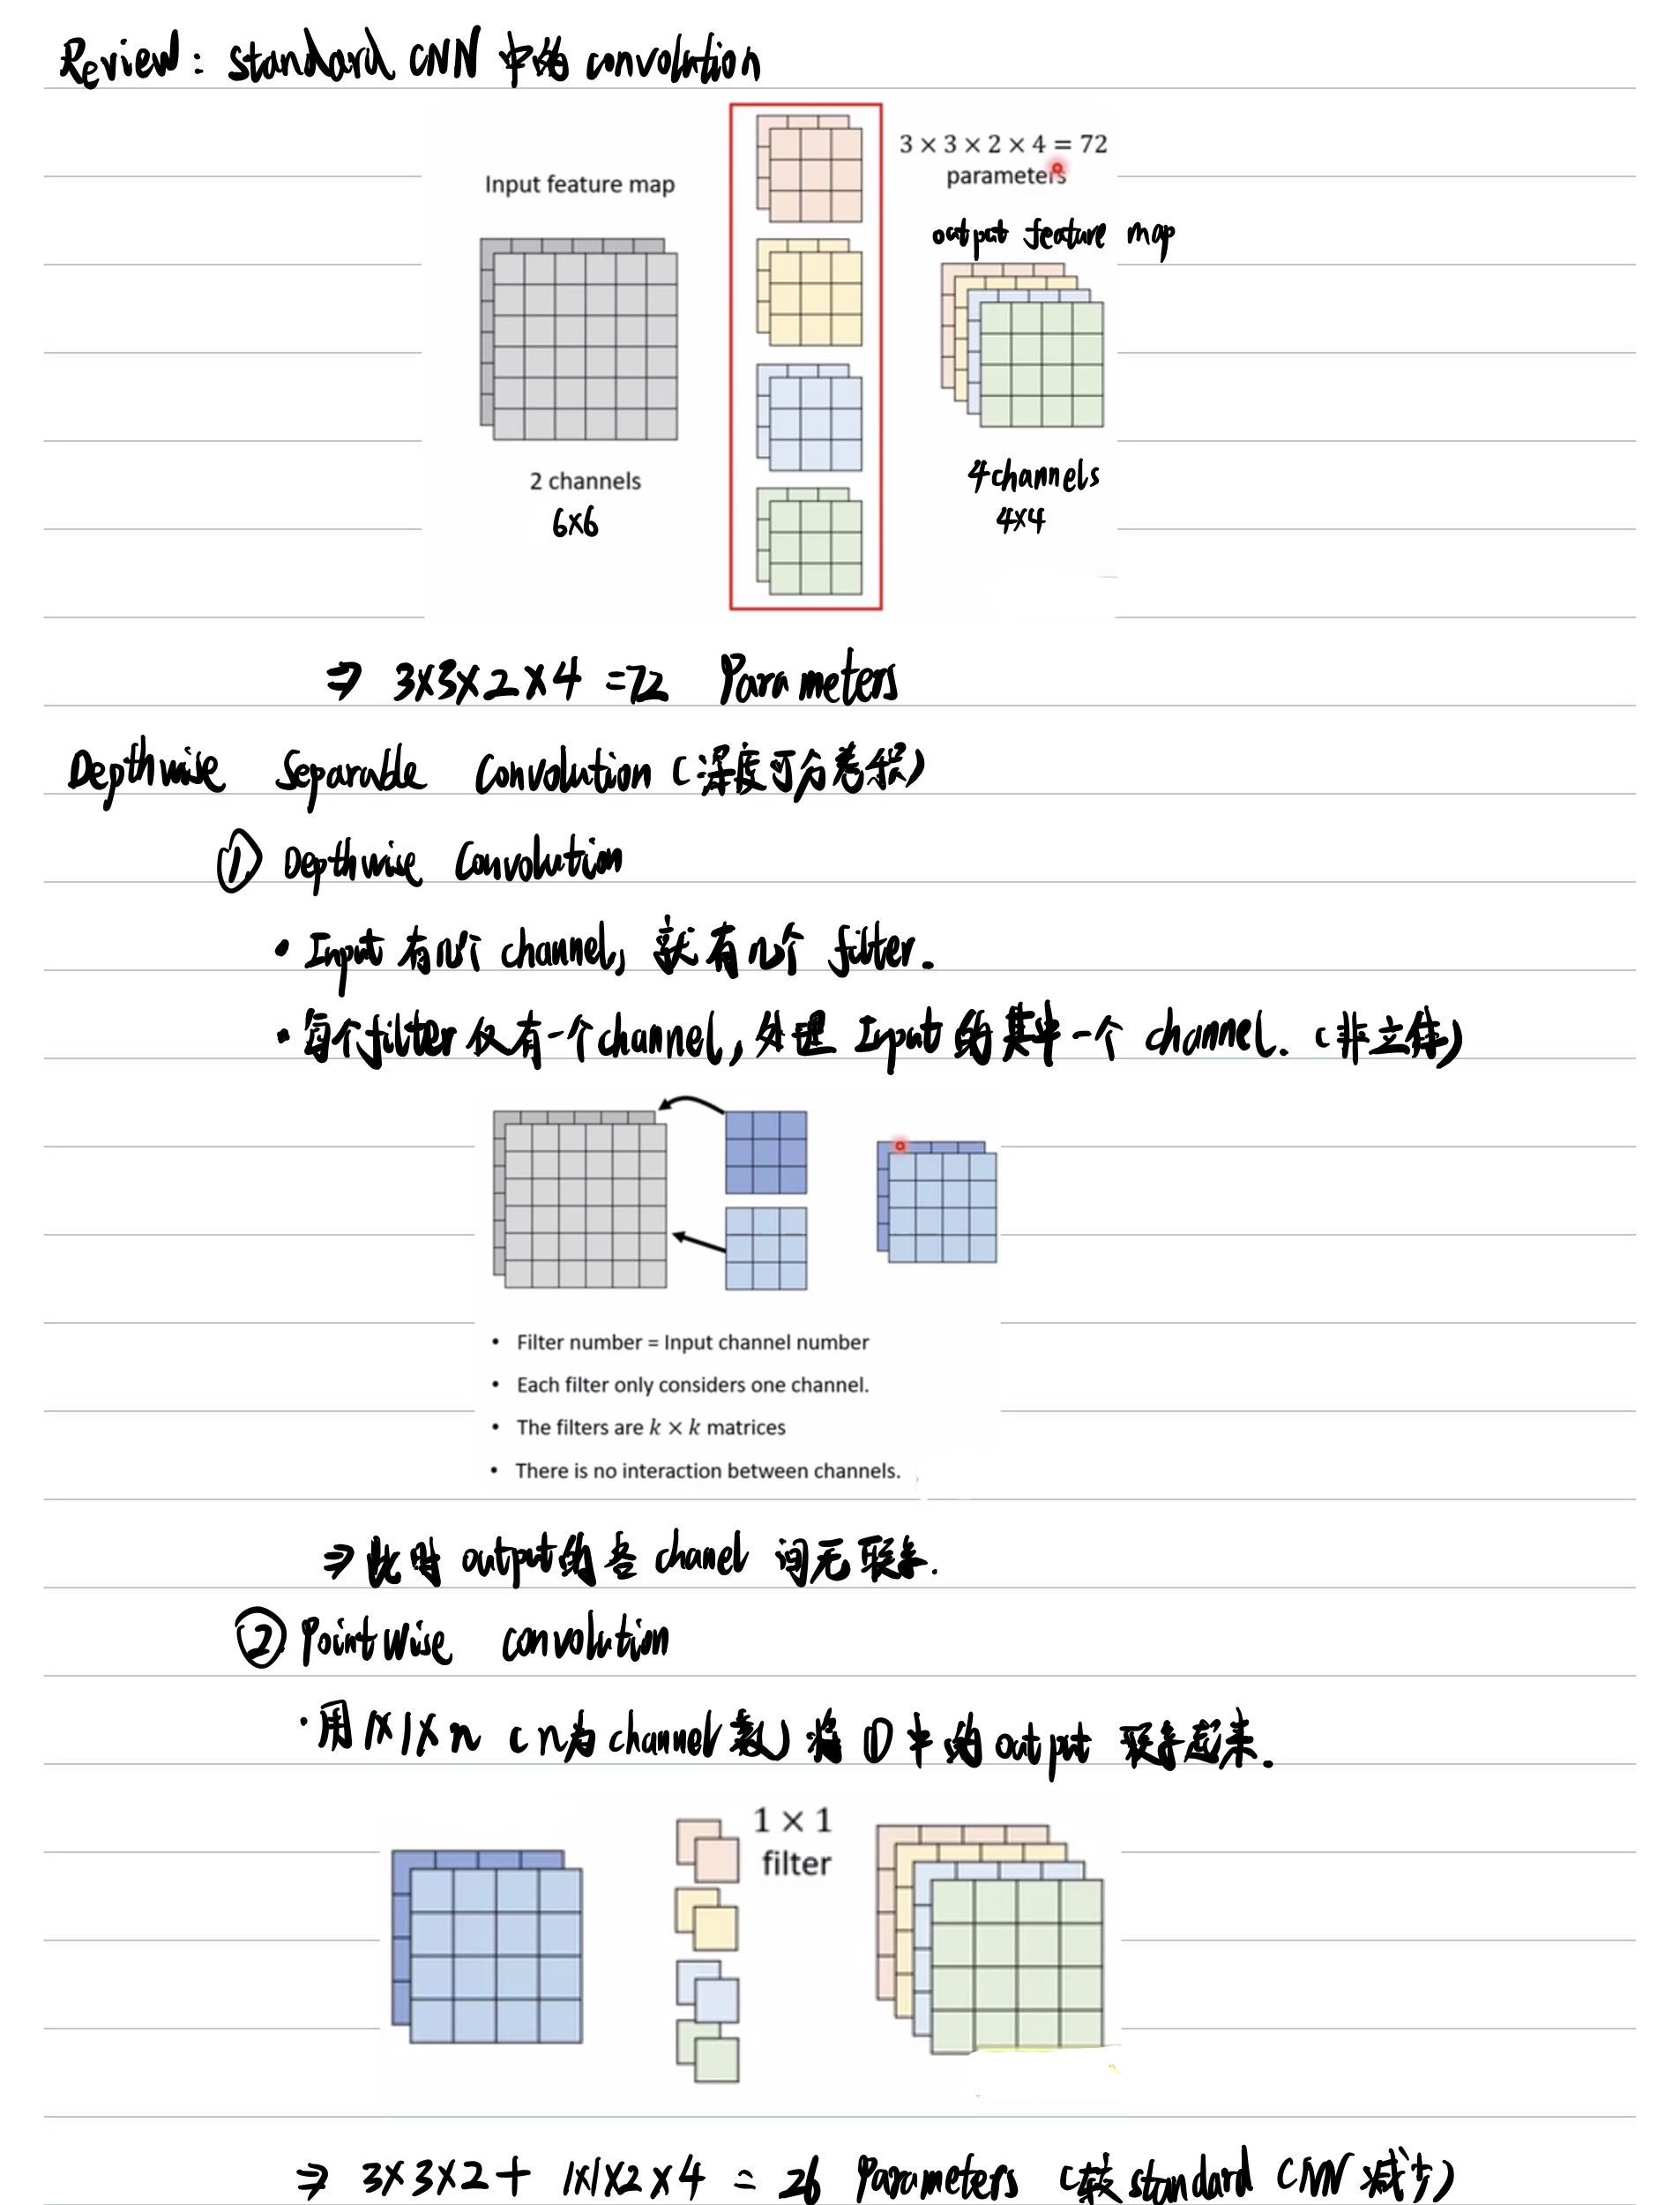 Review: standard CNN 中的 convolution
3 × 3 × 2 × 4 = 72
Input feature map
parameters
output feature map
2 channels
4 channels
6×6
4×4
⇒ 3×3×2×4 =72 Parameters
Depthwise Separable Convolution (深度可分卷积)
① Depthwise Convolution
• Input 有几个 channel, 就有几个 filter.
• 每个filter 仅有一个channel, 处理 Input 的其中一个 channel. (非立体)
• Filter number = Input channel number
• Each filter only considers one channel.
• The filters are k × k matrices
• There is no interaction between channels.
⇒ 此时 output的各 chanel 间无联系.
② Pointwise convolution
· 用 1×1×n (n为channel数) 将 ①中的 output 联系起来.
1 × 1
filter
⇒ 3×3×2 + 1×1×2×4 = 26 Parameters (较 standard CNN 减少)